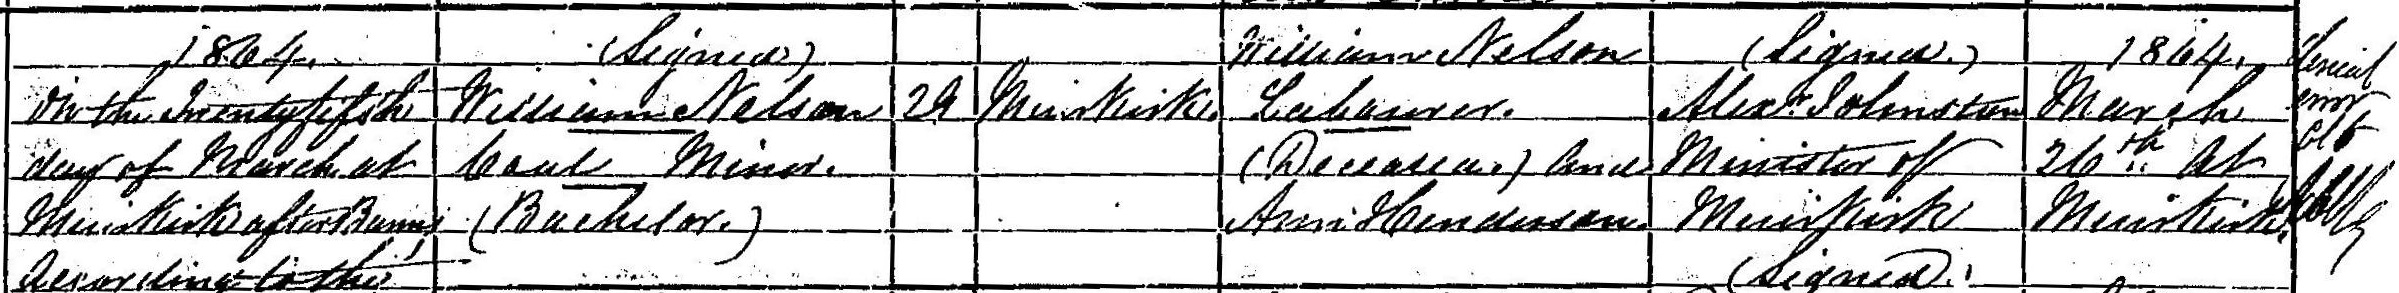 1864.
On the Twentyfifth
day of March at
Muirkirk after Banns
According to the
(Signed)
William Nelson
Coal Miner.
(Bachelor.)
Muirkirk.
William Nelson
Labourer.
(Deceased.) and
Ann Henderson.
(Signed.)
Alexr. Johnston
Minister of
Muirkirk
(Signed.)
1864.
March
26th. At
Muirkirk.
Clerical
error